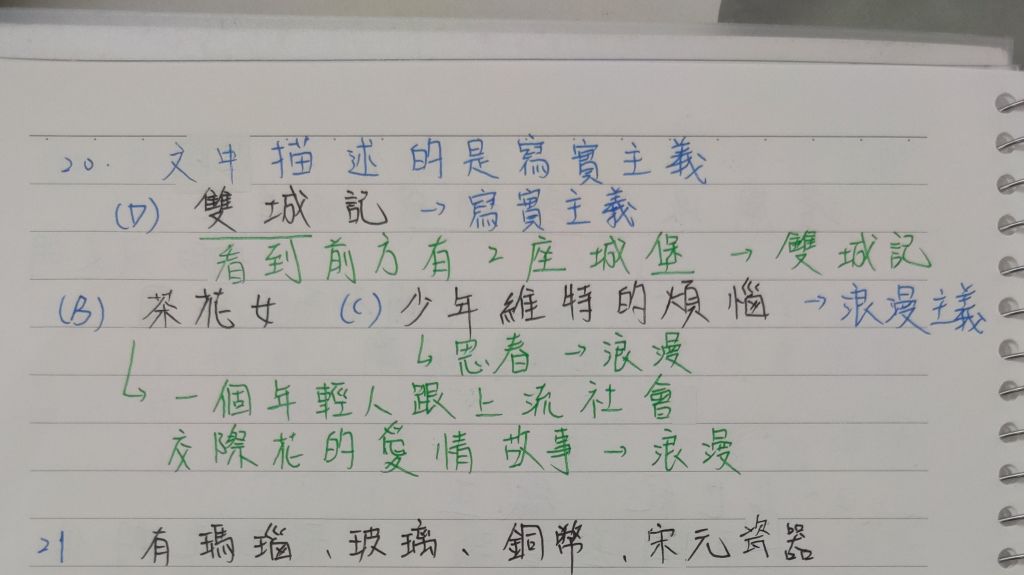 20. 文中描述的是寫實主義
(D) 雙城記 → 寫實主義
看到前方有2座城堡 → 雙城記
(B) 茶花女 (C) 少年維特的煩惱 → 浪漫主義
↳ 思春 → 浪漫
↳ 一個年輕人跟上流社會
交際花的愛情故事 → 浪漫
21 有瑪瑙、玻璃、銅幣、宋元瓷器